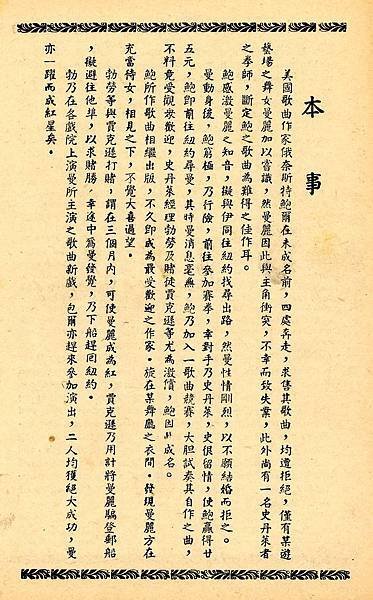 本事
美國歌曲作家俄奈斯特鮑爾在未成名前，四處奔走，求售其歌曲，均遭拒絕，僅有某遊
藝場之舞女曼麗加以賞識，然曼麗因此與主角衝突，不幸而致失業，此外尚有一名史丹萊者
之拳師，斷定鮑之歌曲為難得之佳作耳。
鮑感激曼麗之知音，擬與伊同往紐約找尋出路，然曼性情剛烈，以不願結婚而拒之。
曼動身後，鮑窮極，乃行儉，前往參加賽拳，幸對手乃史丹萊，史佷留情，使鮑贏得廿
五元，鮑即前往紐約尋曼，其時曼消息毫無，鮑乃加入一歌曲競賽，大胆試奏其自作之曲，
不料竟受觀衆歡迎，史丹萊其經理勃勞及賭徒賈克遜等尤為激償，鮑因此成名。
鮑所作歌曲相繼出版，不久即成為最受歡迎之作家。旋在某舞廳之衣間，發現曼麗方在
充當侍女，相見之下，不覺大喜過望。
勃勞等與賈克遜打賭，謂在三個月內，可使曼麗成為紅，賈克遜乃用計將曼麗騙登郵船
，擬避往他埠，以求賭勝，幸途中為曼發覺，乃下船趕回紐約。
勃乃在各戲院上演曼所主演之歌曲新戲，包爾亦趕來參加演出，二人均獲絕大成功，曼
亦一躍而成紅星矣。